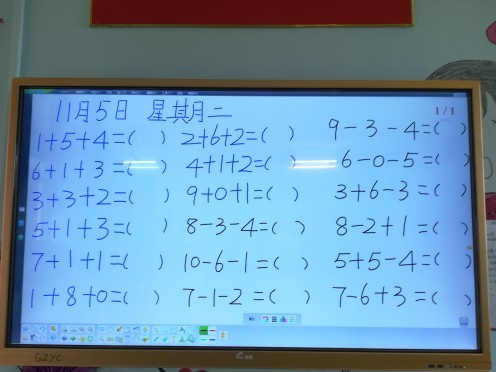 11月5日 星其月二
1/1
1+5+4=( ) 2+6+2=( ) 9-3-4=( )
6+1+3=( ) 4+1+2=( ) 6-0-5=( )
3+3+2=( ) 9+0+1=( ) 3+6-3=( )
5+1+3=( ) 8-3-4=( ) 8-2+1=( )
7+1+1=( ) 10-6-1=( ) 5+5-4=( )
1+8+0=( ) 7-1-2=( ) 7-6+3=( )
GZYC